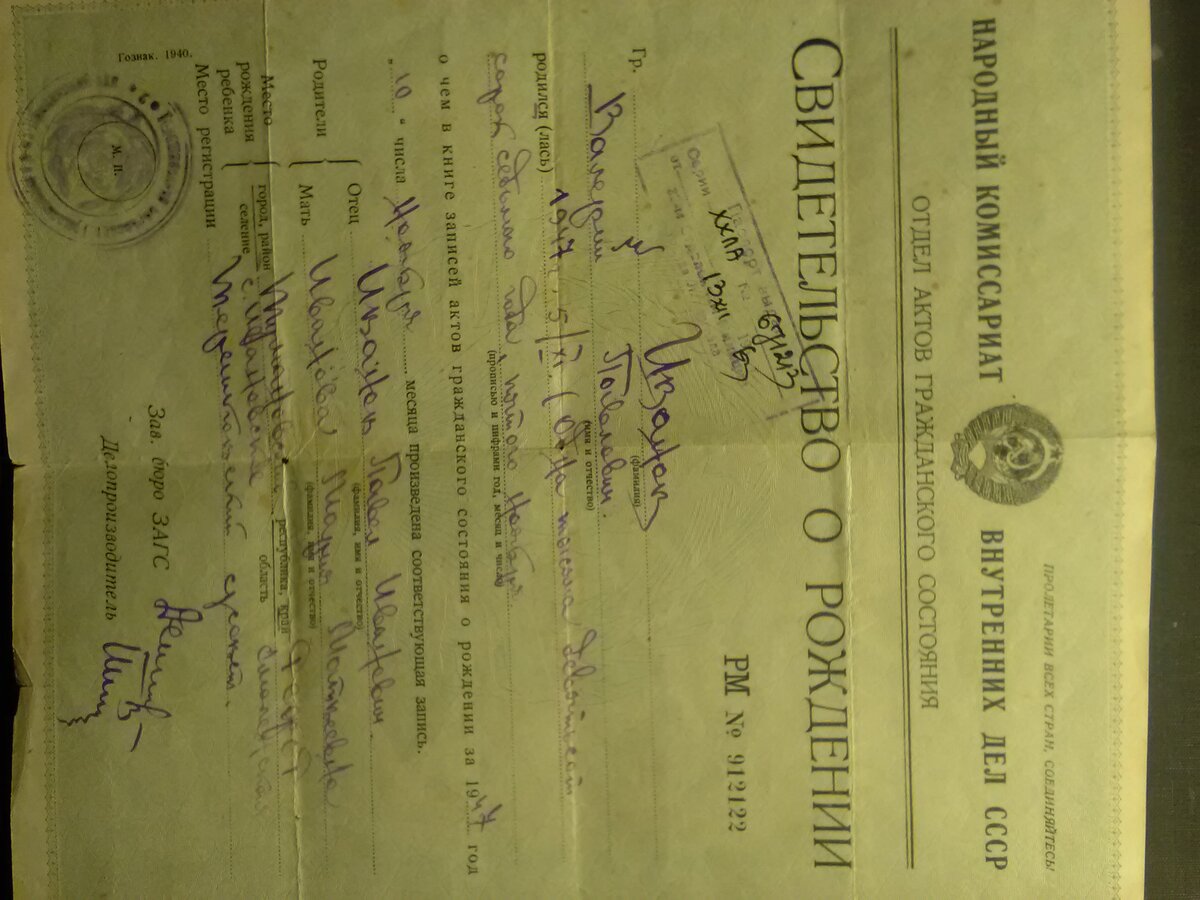 ПРОЛЕТАРИИ ВСЕХ СТРАН, СОЕДИНЯЙТЕСЬ!
НАРОДНЫЙ КОМИССАРИАТ ВНУТРЕННИХ ДЕЛ СССР
ОТДЕЛ АКТОВ ГРАЖДАНСКОГО СОСТОЯНИЯ
СВИДЕТЕЛЬСТВО О РОЖДЕНИИ
РМ № 912122
Серии ХХПА № 671213
Гр. Иванов
(фамилия)
Валерий Павлович.
(имя и отчество)
родился (лась) 1947 г. 5/XI (Одна тысяча девятьсот
сорок седьмого года, пятого ноября
(прописью и цифрами год, месяц и число)
о чем в книге записей актов гражданского состояния о рождении за 1947 год
„10“ числа Ноября месяца произведена соответствующая запись.
Родители
Отец Иванов Павел Иванович.
(фамилия, имя и отчество)
Мать Иванова Мария
(фамилия, имя и отчество)
Место рождения ребенка
город, район республика, край РСФСР
селение с. Ивановка область
Место регистрации
Зав. бюро ЗАГС
Делопроизводитель
М. П.
Гознак. 1940.